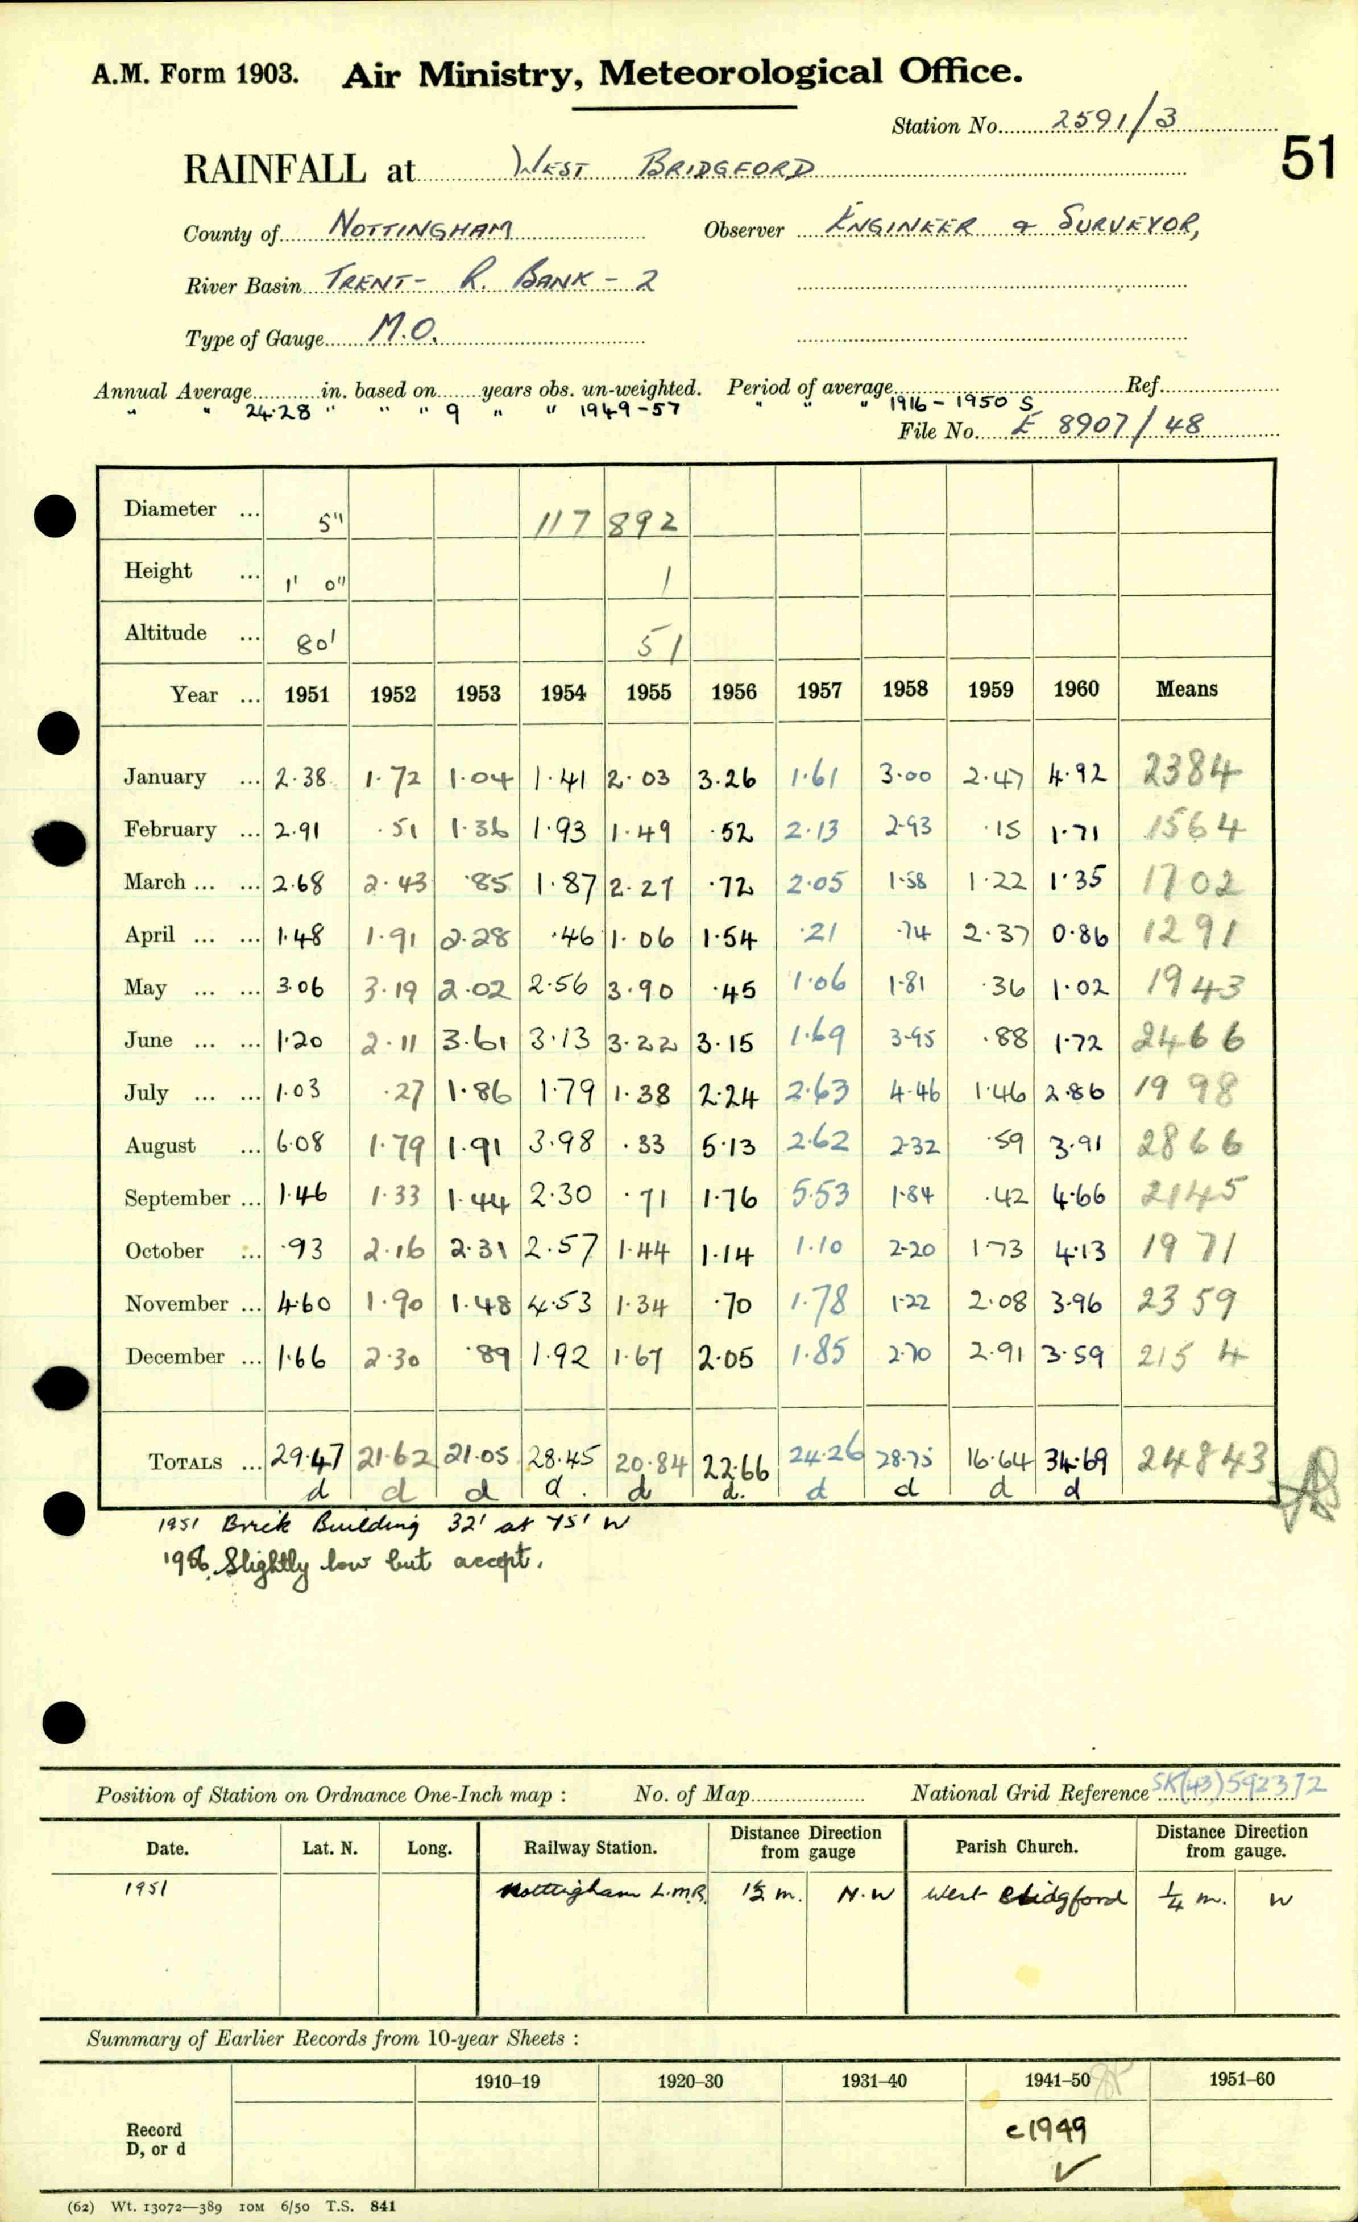 A.M. Form 1903. Air Ministry, Meteorological Office.
Station No. 2591/3
51
RAINFALL at WEST BRIDGFORD
County of NOTTINGHAM Observer ENGINEER & SURVEYOR,
River Basin TRENT - R. BANK - 2
Type of Gauge M.O.
Annual Average in. based on years obs. un-weighted. Period of average Ref.
" " 24.28 " " " 9 " " 1949-57 " " " 1916-1950 S
File No. E 8907/48
Diameter ... 5" 117 892
Height ... 1' 0" 1
Altitude ... 80' 51
Year ... 1951 1952 1953 1954 1955 1956 1957 1958 1959 1960 Means
January ... 2.38 1.72 1.04 1.41 2.03 3.26 1.61 3.00 2.47 4.92 2384
February ... 2.91 .51 1.36 1.93 1.49 .52 2.13 2.93 .15 1.71 1564
March ... ... 2.68 2.43 .85 1.87 2.27 .72 2.05 1.58 1.22 1.35 1702
April ... ... 1.48 1.91 2.28 .46 1.06 1.54 .21 .74 2.37 0.86 1291
May ... ... 3.06 3.19 2.02 2.56 3.90 .45 1.06 1.81 .36 1.02 1943
June ... ... 1.20 2.11 3.61 3.13 3.22 3.15 1.69 3.95 .88 1.72 2466
July ... ... 1.03 .27 1.86 1.79 1.38 2.24 2.63 4.46 1.46 2.86 1998
August ... 6.08 1.79 1.91 3.98 .33 5.13 2.62 2.32 .59 3.91 2866
September ... 1.46 1.33 1.44 2.30 .71 1.76 5.53 1.84 .42 4.66 2145
October ... .93 2.16 2.31 2.57 1.44 1.14 1.10 2.20 1.73 4.13 1971
November ... 4.60 1.90 1.48 4.53 1.34 .70 1.78 1.22 2.08 3.96 2359
December ... 1.66 2.30 .89 1.92 1.67 2.05 1.85 2.70 2.91 3.59 2154
TOTALS ... 29.47 21.62 21.05 28.45 20.84 22.66 24.26 28.75 16.64 34.69 24843
d d d d. d d. d d d d
1951 Brick Building 32' at 75' W
1956. Slightly low but accept.
Position of Station on Ordnance One-Inch map : No. of Map National Grid Reference SK(43)592372
Date. Lat. N. Long. Railway Station. Distance Direction from gauge Parish Church. Distance Direction from gauge.
1951 Nottingham L.M.R. 1½ m. N.W West Bridgford ¼ m. W
Summary of Earlier Records from 10-year Sheets :
1910–19 1920–30 1931–40 1941–50 1951–60
Record
D, or d
c1949
✓
(62) Wt. 13072—389 10M 6/50 T.S. 841